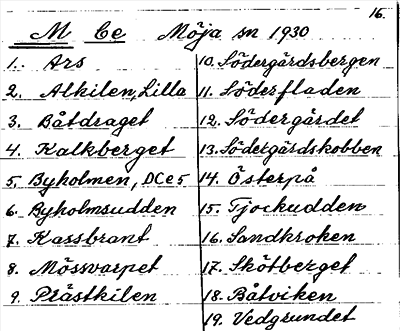 16.
M Ce Möja sn 1930
1. Ars
2. Alkilen, Lilla
3. Båtdraget
4. Kalkberget
5. Byholmen, DCe5
6. Byholmsudden
7. Kassbrant
8. Mössvarpet
9. Prästkilen
10. Södergårdsbergen
11. Söderfladen
12. Södergärdet
13. Södergårdskobben
14. Österpå
15. Tjockudden
16. Sandkroken
17. Skötberget
18. Båtviken
19. Vedgrundet